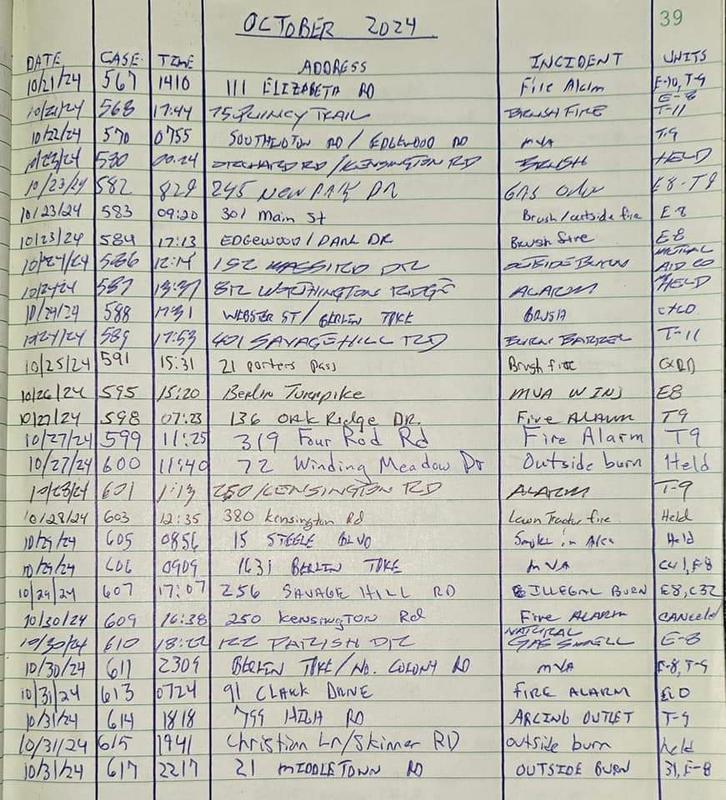 39
OCTOBER 2024
DATE CASE TIME ADDRESS INCIDENT UNITS
10/21/24 567 1410 111 ELIZABETH RD Fire Alarm E-10, T-9
10/21/24 568 17:44 75 QUINCY TRAIL BRUSH FIRE E-8 T-11
10/22/24 570 0755 SOUTHINGTON RD / EDGEWOOD RD MVA T-9
10/23/24 580 00:24 ORCHARD RD / KENSINGTON RD BRUSH HELD
10/23/24 582 829 245 NEW PARK DR GAS Odor E8-T9
10/23/24 583 09:20 301 Main St Brush/outside fire E-8
10/23/24 584 17:13 EDGEWOOD / PARK DR Brush fire E8
10/24/24 586 12:14 152 DR OUTSIDE BURN MUTUAL AID CO
10/24/24 587 13:37 812 WORTHINGTON RIDGE ALARM HELD
10/24/24 588 17:31 WEBSTER ST / BERLIN TPKE BRUSH
10/24/24 589 17:53 401 SAVAGE HILL RD BURN BARREL T-11
10/25/24 591 15:31 21 porters pass Brush fire
10/26/24 595 15:20 Berlin Turnpike MVA W INJ E8
10/27/24 598 07:23 136 Oak Ridge DR. Fire ALARM T9
10/27/24 599 11:25 319 Four Rod Rd Fire Alarm T9
10/27/24 600 11:40 72 Winding Meadow Dr Outside burn Held
10/28/24 601 1:13 250 KENSINGTON RD ALARM T-9
10/28/24 603 12:35 380 Kensington Rd Lawn Tractor fire Held
10/29/24 605 0856 15 STEELE BLVD Smoke in Area Held
10/29/24 606 0909 1631 BERLIN TPKE MVA E-8
10/29/24 607 17:07 256 SAVAGE HILL RD ILLEGAL BURN E8, C32
10/30/24 609 16:38 250 Kensington Rd Fire ALARM canceled
10/30/24 610 18:22 122 PARISH DR NATURAL GAS SMELL E-8
10/30/24 611 2309 BERLIN TPKE / NO. COLONY RD MVA E-8, T-9
10/31/24 613 0724 91 CLARK DRIVE FIRE ALARM
10/31/24 614 1818 799 HIGH RD ARCING OUTLET T-9
10/31/24 615 1941 Christian Ln/Skinner RD outside burn held
10/31/24 617 2217 21 MIDDLETOWN RD OUTSIDE BURN 31, E-8